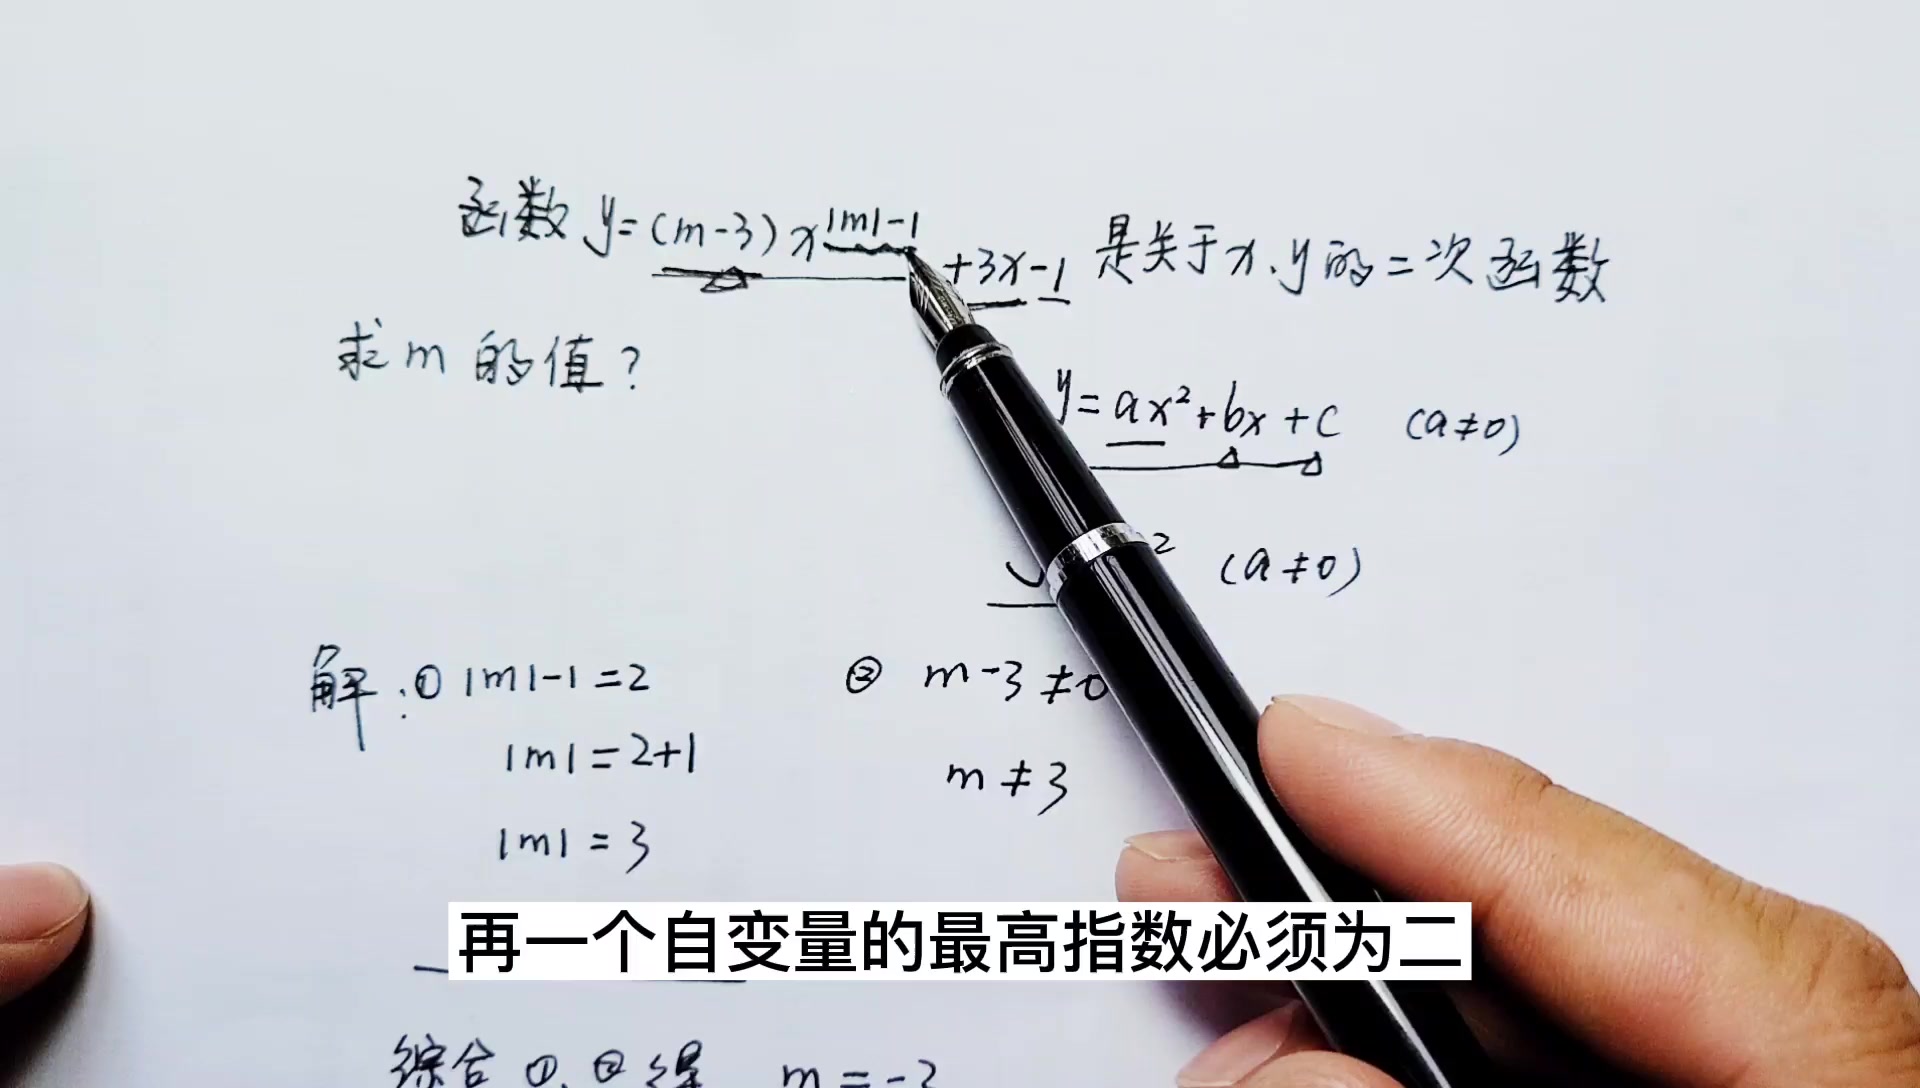 函数 y=(m-3)x^{|m|-1}+3x-1 是关于x.y的二次函数
求m的值?
y=ax²+bx+c (a≠0)
2 (a≠0)
解:① |m|-1=2 ② m-3≠0
|m|=2+1 m≠3
|m|=3
再一个自变量的最高指数必须为二
综合①.②得 m=-3